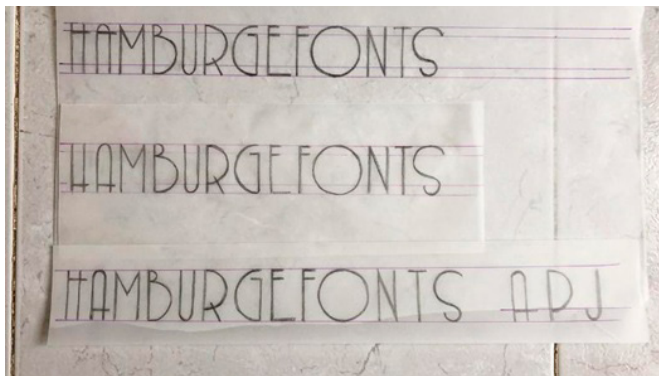 HAMBURGEFONTS
HAMBURGEFONTS
HAMBURGEFONTS APJ